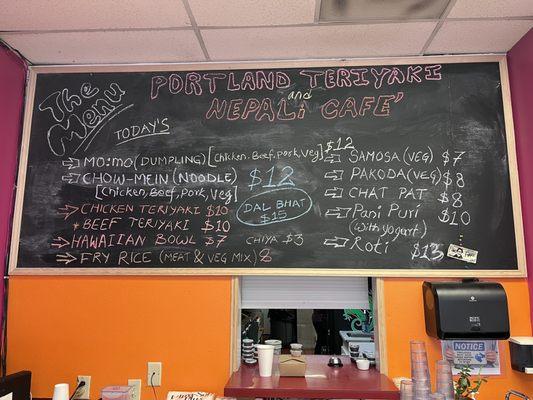 The Menu
TODAY'S
PORTLAND TERIYAKI
and
NEPALI CAFE'
MO:MO (DUMPLING) [Chicken, Beef, Pork, Veg] $12
CHOW-MEIN (NOODLE) $12
[Chicken, Beef, Pork, Veg]
CHICKEN TERIYAKI $10
* BEEF TERIYAKI $10
HAWAIIAN BOWL $7
FRY RICE (MEAT & VEG MIX) 8
DAL BHAT
$15
CHIYA $3
SAMOSA (VEG) $7
PAKODA (VEG) $8
CHAT PAT $8
Pani Puri $10
(with yogurt)
Roti $13
NOTICE